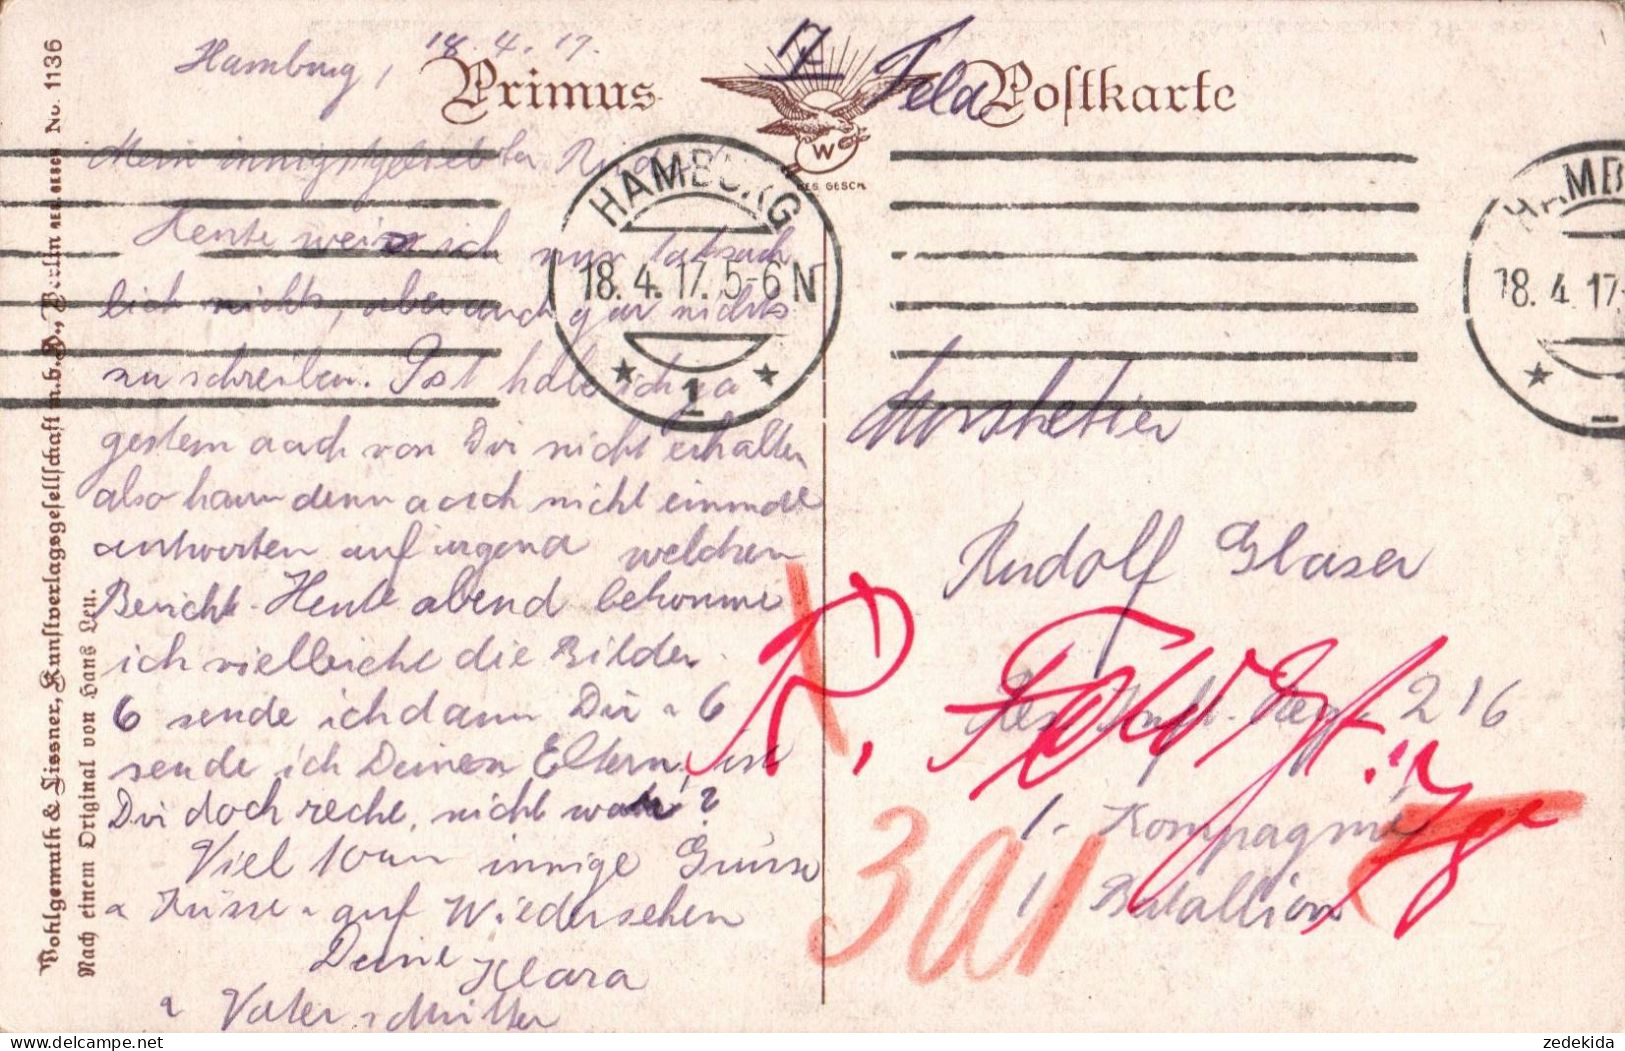 Hamburg, 18.4.17.
Primus Postkarte
17 Feld
RES. GESCH.
W
Mein innigstgeliebter
Heute weiss ich nur tatsäch
lich nichts, aber auch gar nichts
zu schreiben. Post habe ich ja
gestern auch von Dir nicht erhalten
also kann denn auch nicht einmal
antworten auf irgend welchen
Bericht. Heute abend bekomme
ich vielleicht die Bilder.
6 sende ich dann Dir u 6
sende ich Deinen Eltern, ist
Dir doch recht, nicht wahr?
Viel innige Grüsse
u Küsse u auf Wiedersehen
Deine Klara
u Vater u Mutter
HAMBURG
18.4.17. 5-6 N
1
HAMB
18.4 17
Musketier
Rudolf Glaser
Res. Inft. Regt. 216
1. Kompagnie
1. Batallion
R.
301
Wohlgemuth & Lissner, Kunstverlagsgesellschaft m.b.H., Berlin No. 1136
Nach einem Original von Hans Leu.
zedekida